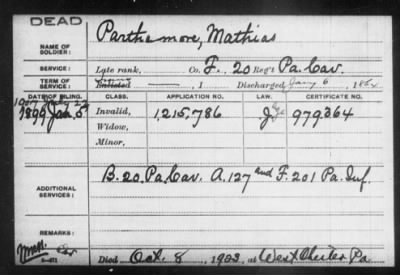 DEAD
NAME OF SOLDIER: Parthemore, Mathias
SERVICE: Late rank, Co. F., 20 Reg't Pa. Cav.
TERM OF SERVICE: Enlisted , 1 Discharged 6, 186
DATE OF FILING. CLASS. APPLICATION NO. LAW. CERTIFICATE NO.
1907
1899 Jan. 5 Invalid, 1,215,786 979364
Widow,
Minor,
ADDITIONAL SERVICES: B. 20. Pa. Cav. A. 127 and F. 201 Pa. Inf.
REMARKS:
Died Oct. 8, 1922, at West Chester Pa